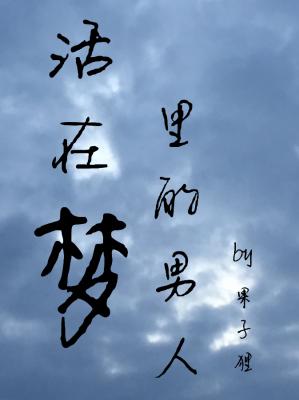 活在梦
里的男人
by果子狸